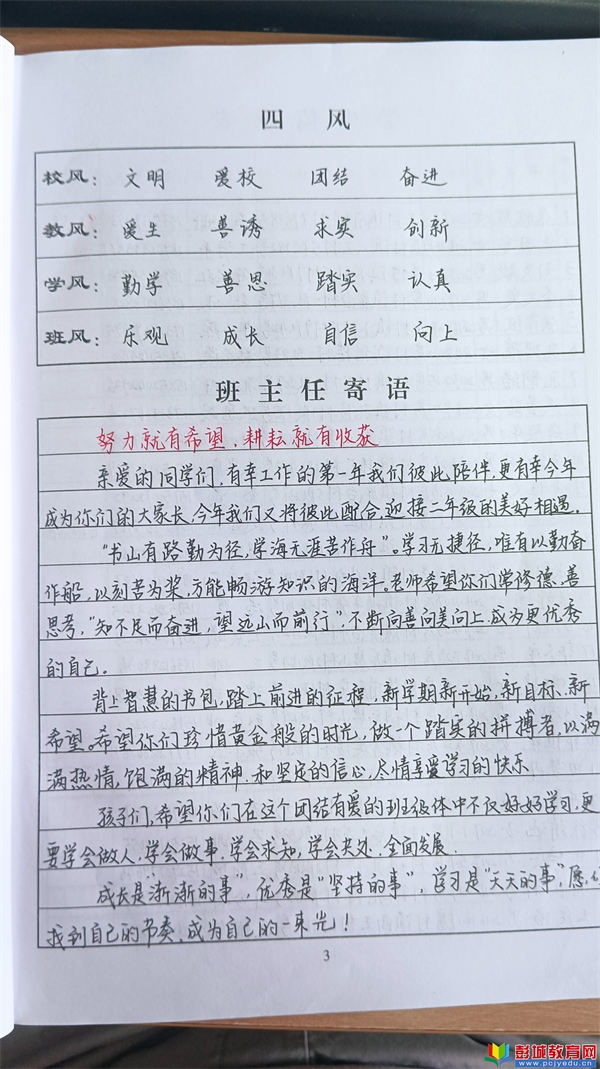 四 风
校风: 文明 爱校 团结 奋进
教风: 爱生 善诱 求实 创新
学风: 勤学 善思 踏实 认真
班风: 乐观 成长 自信 向上
班 主 任 寄 语
努力就有希望，耕耘就有收获
亲爱的同学们，有幸工作的第一年我们彼此陪伴，更有幸今年
成为你们的大家长，今年我们又将彼此配合，迎接二年级的美好相遇。
“书山有路勤为径，学海无涯苦作舟”。学习无捷径，唯有以勤奋
作船，以刻苦为桨，方能畅游知识的海洋。老师希望你们常修德，善
思考，“知不足而奋进，望远山而前行”，不断向善向美向上，成为更优秀
的自己。
背上智慧的书包，踏上前进的征程，新学期新开始，新目标、新
希望。希望你们珍惜黄金般的时光，做一个踏实的拼搏者，以满
满热情，饱满的精神和坚定的信心，尽情享受学习的快乐
孩子们，希望你们在这个团结有爱的班级体中不仅好好学习，更
要学会做人，学会做事，学会求知，学会共处，全面发展.
成长是“渐渐的事”，优秀是“坚持的事”，学习是“天天的事”，愿
找到自己的节奏，成为自己的一束光！
3
彭城教育网
www.pcjyedu.cn